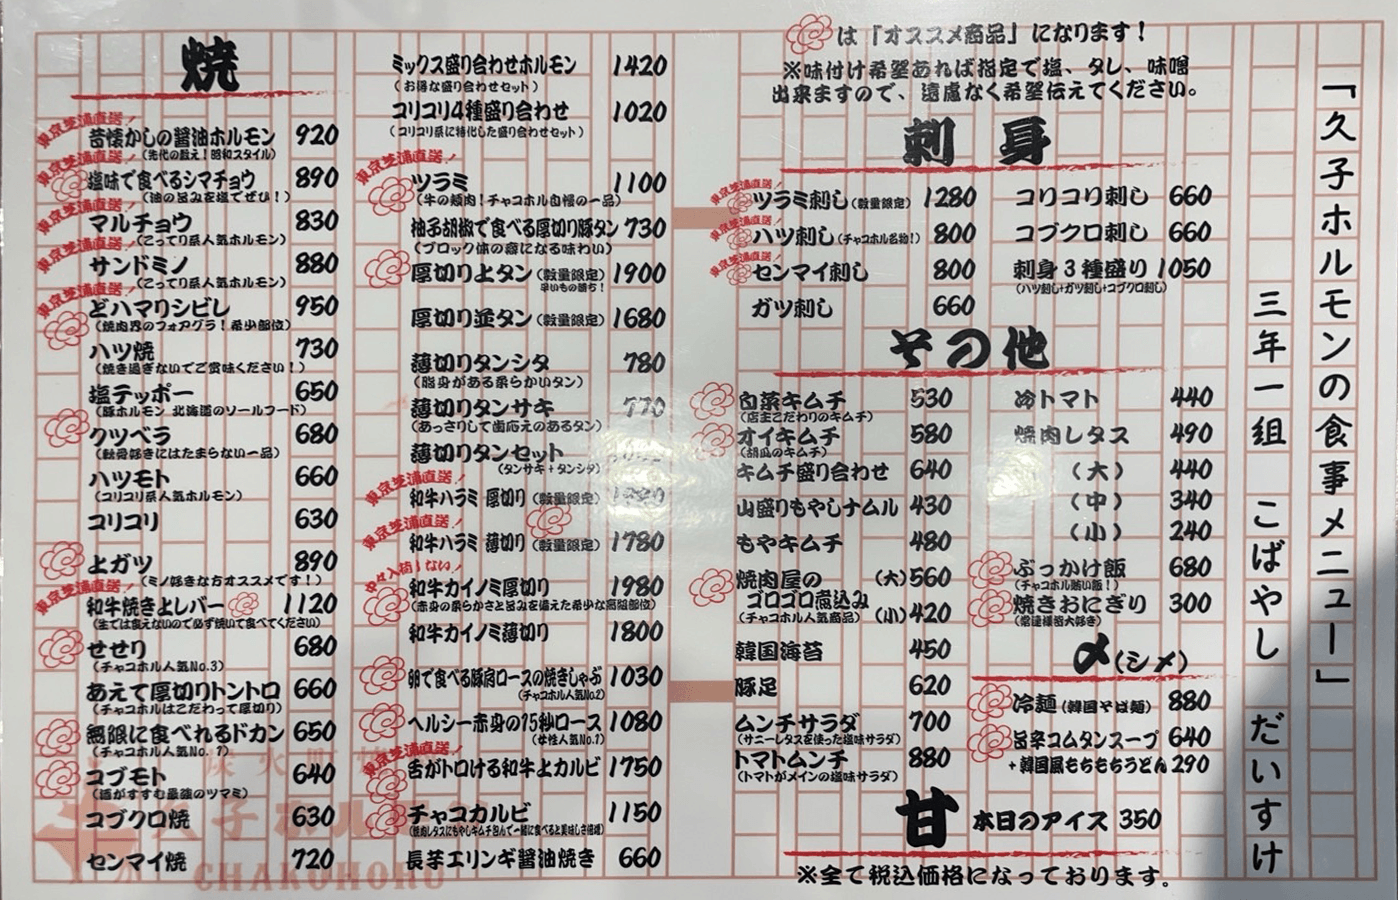 焼
東京芝浦直送!
昔懐かしの醤油ホルモン 920
(先代の教え!昭和スタイル)
東京芝浦直送!
塩味で食べるシマチョウ 890
(油の旨みを塩でぜひ!)
東京芝浦直送!
マルチョウ 830
(こってり系人気ホルモン)
東京芝浦直送!
サンドミノ 880
(こってり系人気ホルモン)
東京芝浦直送!
どハマりシビレ 950
(焼肉界のフォアグラ!希少部位)
ハツ焼 730
(焼き過ぎないでご賞味ください!)
塩テッポー 650
(豚ホルモン 北海道のソールフード)
クツベラ 680
(軟骨好きにはたまらない一品)
ハツモト 660
(コリコリ系人気ホルモン)
コリコリ 630
上ガツ 890
(ミノ好きな方オススメです!)
東京芝浦直送!
和牛焼き上レバー 1120
(生では食えないので必ず焼いて食べてください)
せせり 680
(チャコホル人気No.3)
あえて厚切りトントロ 660
(チャコホルはこだわって厚切り)
無限に食べれるドカン 650
(チャコホル人気No.1)
コブモト 640
(酒がすすむ最強のツマミ)
コブクロ焼 630
センマイ焼 720
CHAKOHORU
ミックス盛り合わせホルモン 1420
(お得な盛り合わせセット)
コリコリ4種盛り合わせ 1020
(コリコリ系に特化した盛り合わせセット)
東京芝浦直送!
ツラミ 1100
(牛の頬肉!チャコホル自慢の一品)
柚子胡椒で食べる厚切り豚タン 730
(ブロック体の癖になる味わい)
厚切り上タン(数量限定) 1900
早いもの勝ち!
厚切り並タン(数量限定) 1680
薄切りタンシタ 780
(脂身がある柔らかいタン)
薄切りタンサキ 770
(あっさりして歯応えのあるタン)
薄切りタンセット
(タンサキ+タンシタ)
東京芝浦直送!
和牛ハラミ 厚切り(数量限定)
東京芝浦直送!
和牛ハラミ 薄切り(数量限定) 1780
中々入荷しない!
和牛カイノミ厚切り 1980
(赤身の柔らかさと旨みを備えた希少な高級部位)
和牛カイノミ薄切り 1800
卵で食べる豚肩ロースの焼きしゃぶ 1030
(チャコホル人気No.2)
ヘルシー赤身の15秒ロース 1080
(女性人気No.1)
東京芝浦直送!
舌がトロける和牛上カルビ 1750
チャコカルビ 1150
(焼肉レタスにもやしキムチ包んで一緒に食べると美味しさ倍増)
長芋エリンギ醤油焼き 660
は「オススメ商品」になります!
※味付け希望あれば指定で塩、タレ、味噌
出来ますので、遠慮なく希望伝えてください。
刺身
東京芝浦直送!
ツラミ刺し(数量限定) 1280
東京芝浦直送!
ハツ刺し(チャコホル名物!) 800
東京芝浦直送!
センマイ刺し 800
ガツ刺し 660
コリコリ刺し 660
コブクロ刺し 660
刺身3種盛り 1050
(ハツ刺し+ガツ刺し+コブクロ刺し)
その他
白菜キムチ 530
(店主こだわりのキムチ)
オイキムチ 580
(胡瓜のキムチ)
キムチ盛り合わせ 640
山盛りもやしナムル 430
もやキムチ 480
焼肉屋の (大)560
ゴロゴロ煮込み (小)420
(チャコホル人気商品)
韓国海苔 450
豚足 620
ムンチサラダ 700
(サニーレタスを使った塩味サラダ)
トマトムンチ 880
(トマトがメインの塩味サラダ)
冷トマト 440
焼肉レタス 490
(大) 440
(中) 340
(小) 240
ぶっかけ飯 680
(チャコホル賄い飯!)
焼きおにぎり 300
(常連様皆大好き)
〆(シメ)
冷麺(韓国そば麺) 880
旨辛コムタンスープ 640
+韓国風もちもちうどん 290
甘
本日のアイス 350
※全て税込価格になっております。
「久子ホルモンの食事メニュー」
三年一組 こばやし だいすけ